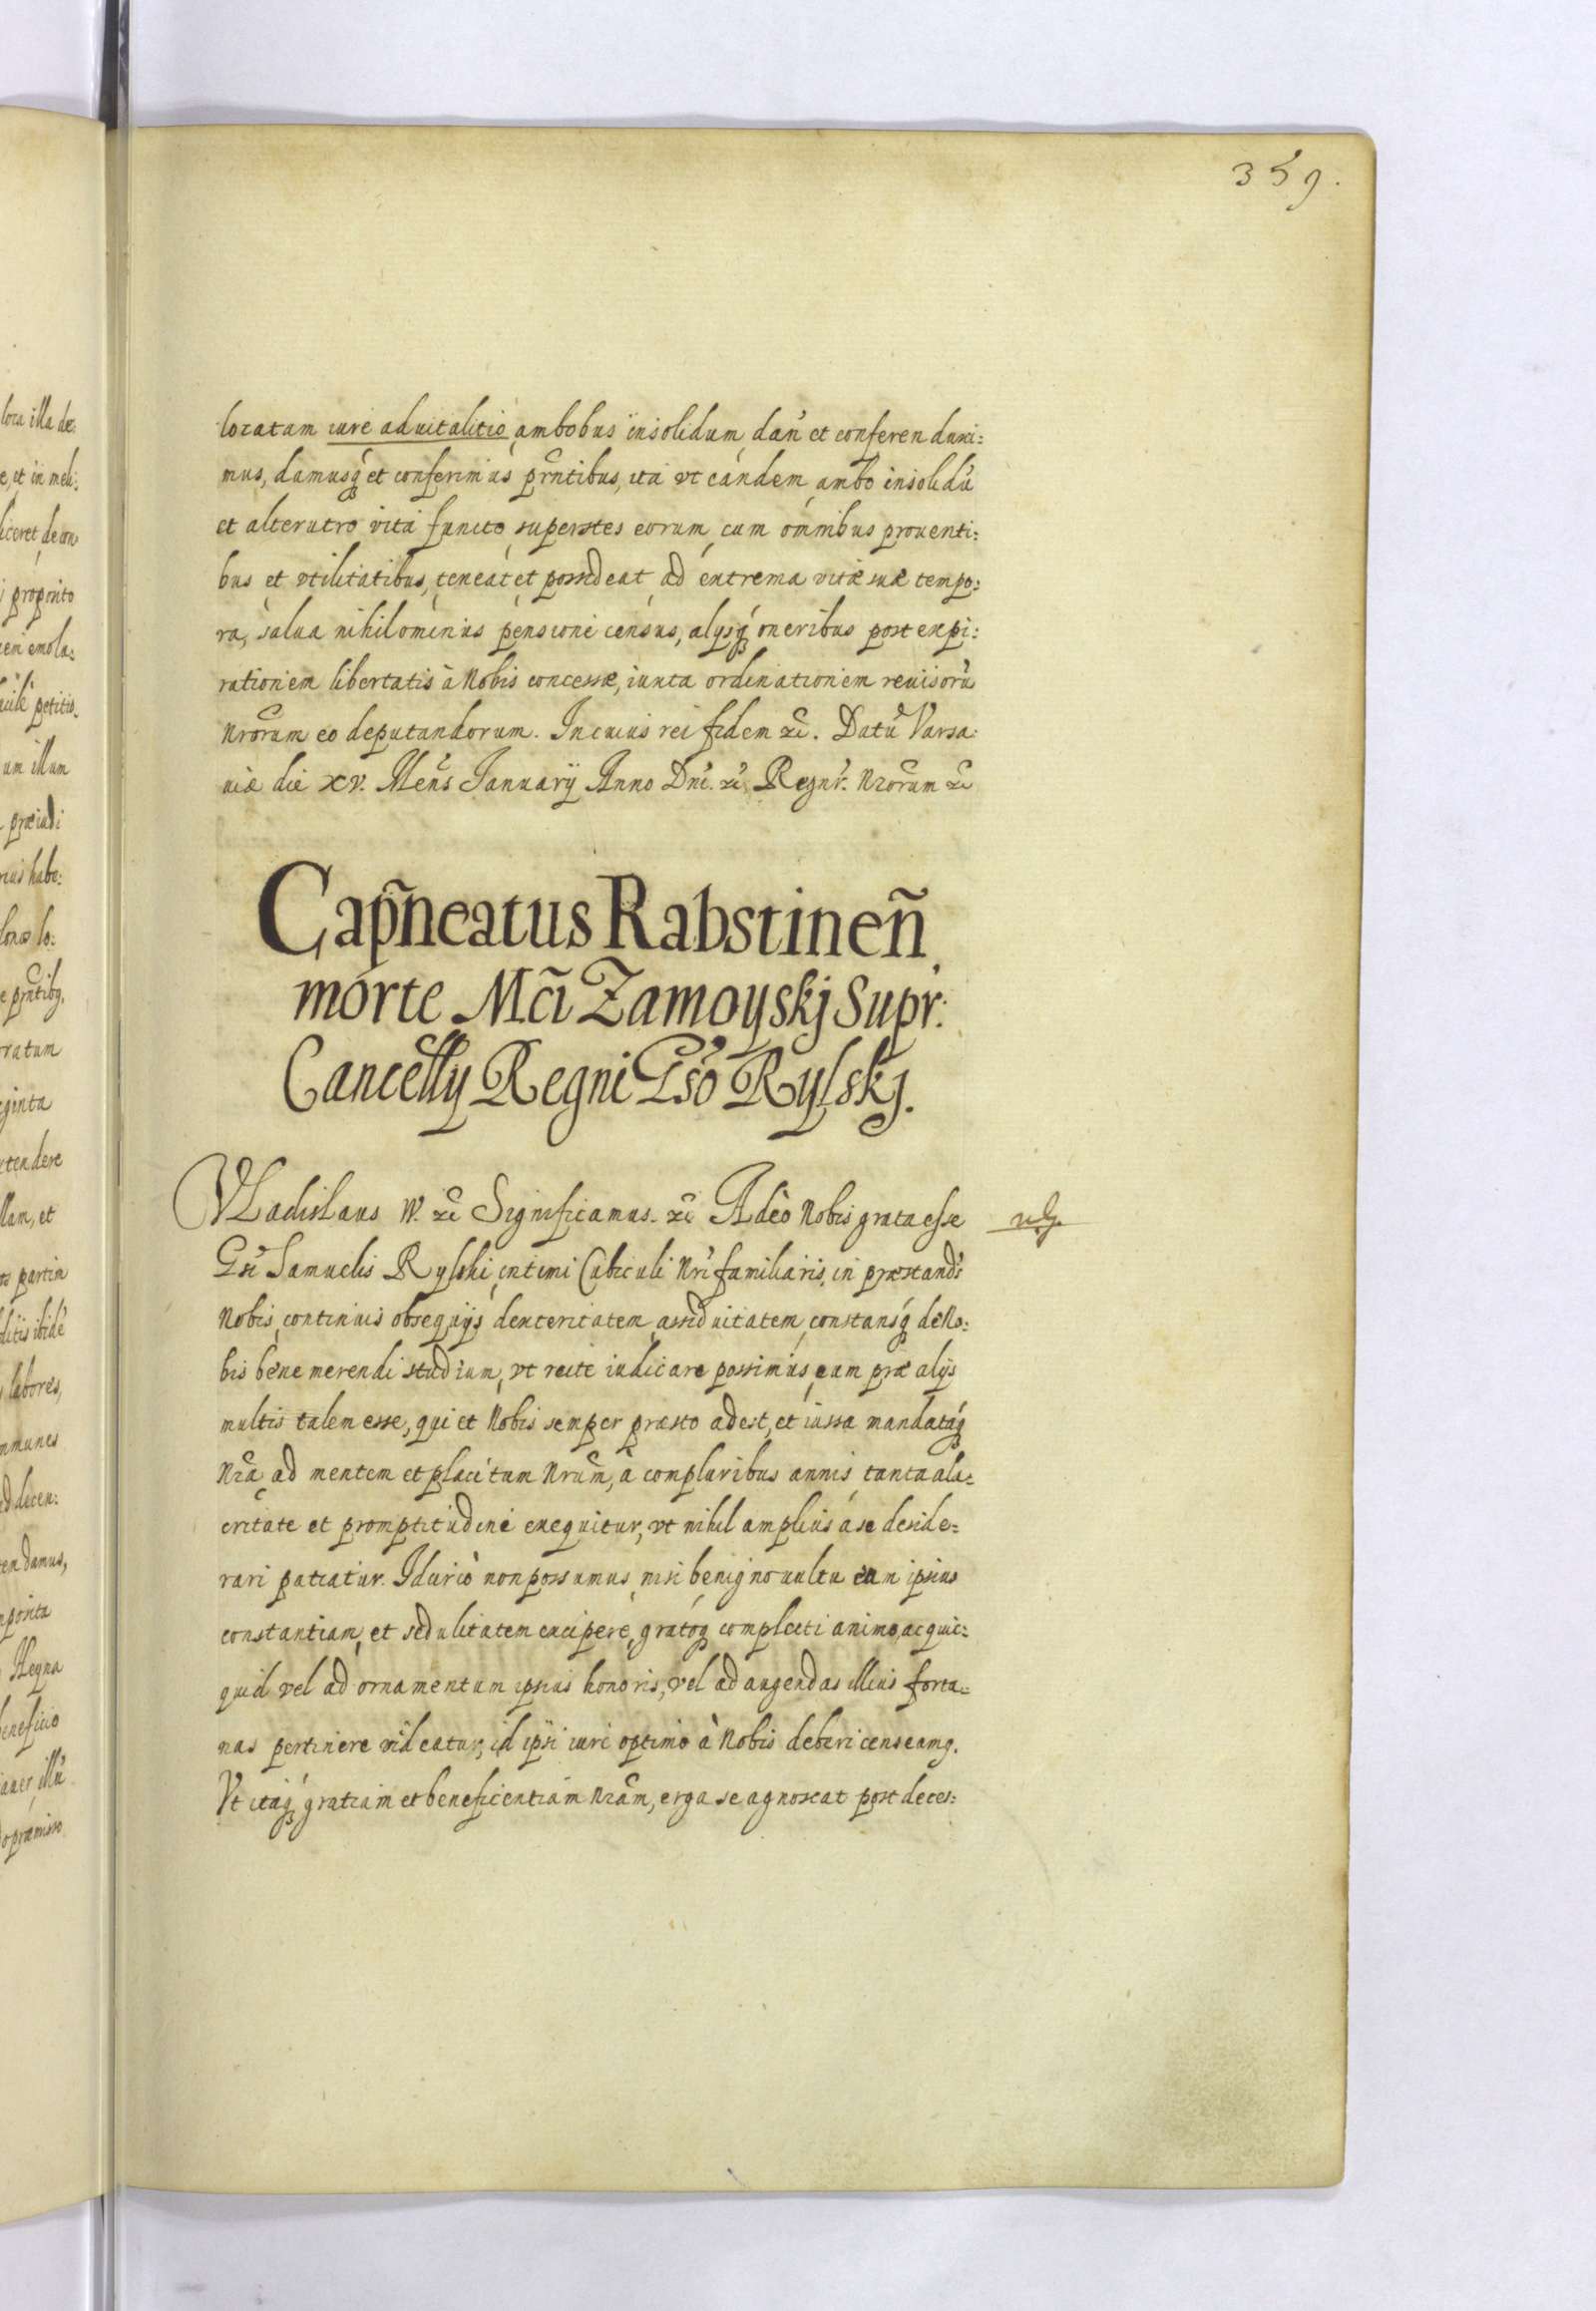 359.
locatam iure aduitalitio ambobus insolidum dan̄ et conferen duxi:
mus, damusq́ et conferimus prñtibus, ita vt eandem ambo insolidũ
et alterutro vita functo superstes eorum cum omnibus prouenti:
bus et vtilitatibus, teneat et possideat ad extrema vitæ suæ tempo:
ra, salua nihilominus pensione census, alysq́ oneribus post expi:
rationem libertatis à Nobis concessæ, iuxta ordinationem reuisorũ
Nrorum eo deputandorum. In cuius rei fidem &c. Datũ Varsa:
uiæ die XV. Mens̃ Januarÿ Anno Dni. &c Regnr̃. Nrorum &c
Cap̃neatus Rabstineñ
morte Mcĩ Zamoyskj Supr:
Cancellÿ Regni Gsõ Rylskj.
VLadislaus IV. &c Significamus. &c Adeò Nobis grata esse
Gsi Samuelis Rylski intimi Cubiculi Nri familiaris, in præstand̃s
Nobis continuis obsequÿs dexteritatem assiduitatem constansq́ de No:
bis bene merendi studium, vt recte iudicare possimus eum præ alÿs
multis talem esse, qui et Nobis semper præsto adest, et iussa mandataq́
Nrã ad mentem et placitum Nrum̃, à compluribus annis tanta ala:
critate et promptitudine exequitur, vt nihil amplius á se deside:
rari patiatur. Idcircò non possumus nisi benigno uultu eam ipsius
constantiam et sedulitatem excipere, gratoq́ complecti animo, ac quic:
quid vel ad ornamentum ipsius honoris, vel ad augendas illius fortu:
nas pertinere videatur, id ipsi iure optimo à Nobis deberi censeamq.
Vt itaq́ gratiam et beneficentiam Nram̃, erga se agnoscat post deces: